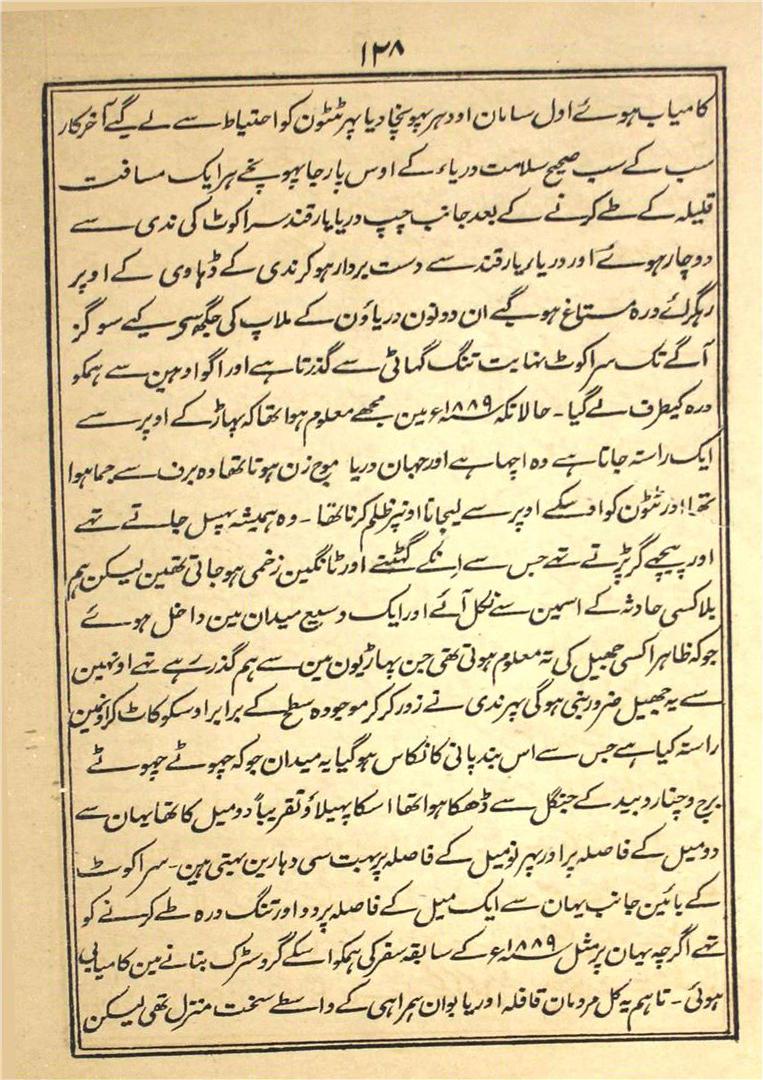 ۱۲۸
کامیاب ہوئے اول سامان اودھر پہونچا دیا پہر ٹٹون کو احتیاط سے لے گیے آخر کار
سب کے سب صحیح سلامت دریاء کے اوس پار جا پہونچے ہر ایک مسافت
قلیلہ کے طے کرنے کے بعد جانب چپ دریا یارقند سراکوٹ کی ندی سے
دوچار ہوئے اور دریاء یارقند سے دست بردار ہو کر ندی کے ڈہاوی کے اوپر
رہگرائے درہ مستاغ ہو گیے ان دونون دریاؤن کے ملاپ کی جگہ سی کیے سو گز
آگے تک سراکوٹ نہایت تنگ گہاٹی سے گذرتا ہے اور اگوا وہین سے ہمکو
درہ کیطرف لے گیا۔ حالانکہ ۱۸۸۹ء مین مجھے معلوم ہوا تھا کہ پہاڑ کے اوپر سے
ایک راستہ جاتا ہے وہ اچہا ہے اور جہان دریا موج زن ہوتا تھا وہ برف سے جما ہوا
تھا اور ٹٹون کو اوسکے اوپر سے لیجانا اونپر ظلم کرنا تھا۔ وہ ہمیشہ پہسل جاتے تہے
اور پیچھے گر پڑتے تہے جس سے انکے گھٹنے اور ٹانگین زخمی ہو جاتی تھین لیکن ہم
بلا کسی حادثہ کے اسمین سے نکل آئے اور ایک وسیع میدان مین داخل ہوئے
جو کہ ظاہرا کسی جھیل کی تہ معلوم ہوتی تھی جن پہاڑیون مین سے ہم گذر رہے تہے اونہین
سے یہ جھیل ضرور بنی ہوگی پہر ندی نے زور کر کر موجودہ سطح کے برابر اوسکو کاٹ کر اونہین
راستہ کیا ہے جس سے اس بند پانی کا نکاس ہو گیا یہ میدان جو کہ چہوٹے چہوٹے
برح و چنار و بید کے جنگل سے ڈھکا ہوا تھا اسکا پہیلاؤ تقریباً دو میل کا تھا یہان سے
دو میل کے فاصلہ پر اور پہر نو میل کے فاصلہ پر بہت سی دہارین بہتی ہین۔ سراکوٹ
کے بائین جانب یہان سے ایک میل کے فاصلہ پر دو اور تنگ درہ طے کرنے کو
تہے اگرچہ یہان پر مثل ۱۸۸۹ء کے سابقہ سفر کی ہمکو اسکے گرو سڑک بنانے مین کامیابی
ہوئی۔ تاہم یہ کل مردمان قافلہ اور یا بوان ہمراہی کے واسطے سخت منزل تھی لیکن